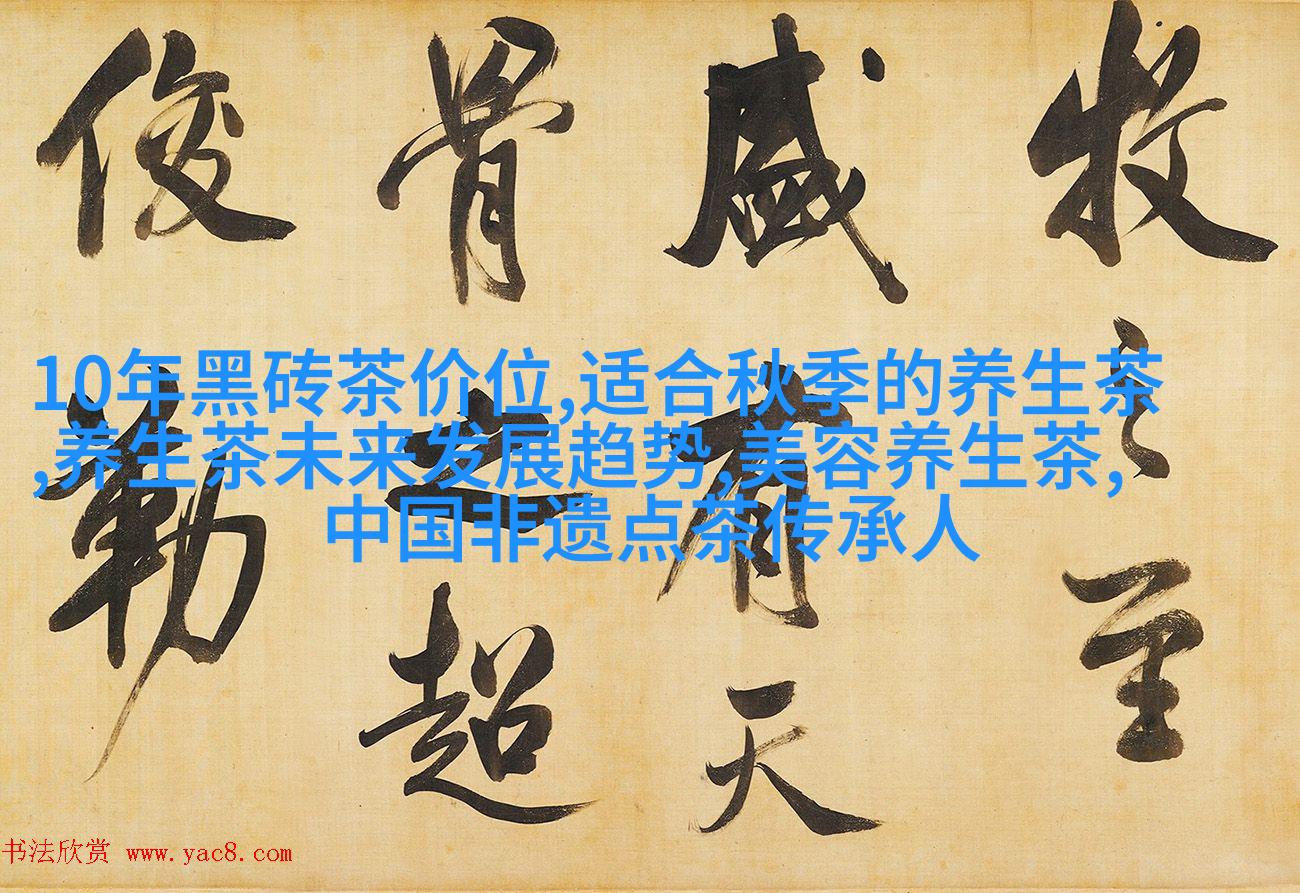 牧之至
盛有天
骨之超
俊勒
10年黑砖茶价位,适合秋季的养生茶
,养生茶未来发展趋势,美容养生茶,
中国非遗点茶传承人
书法欣赏 www.yac8.com